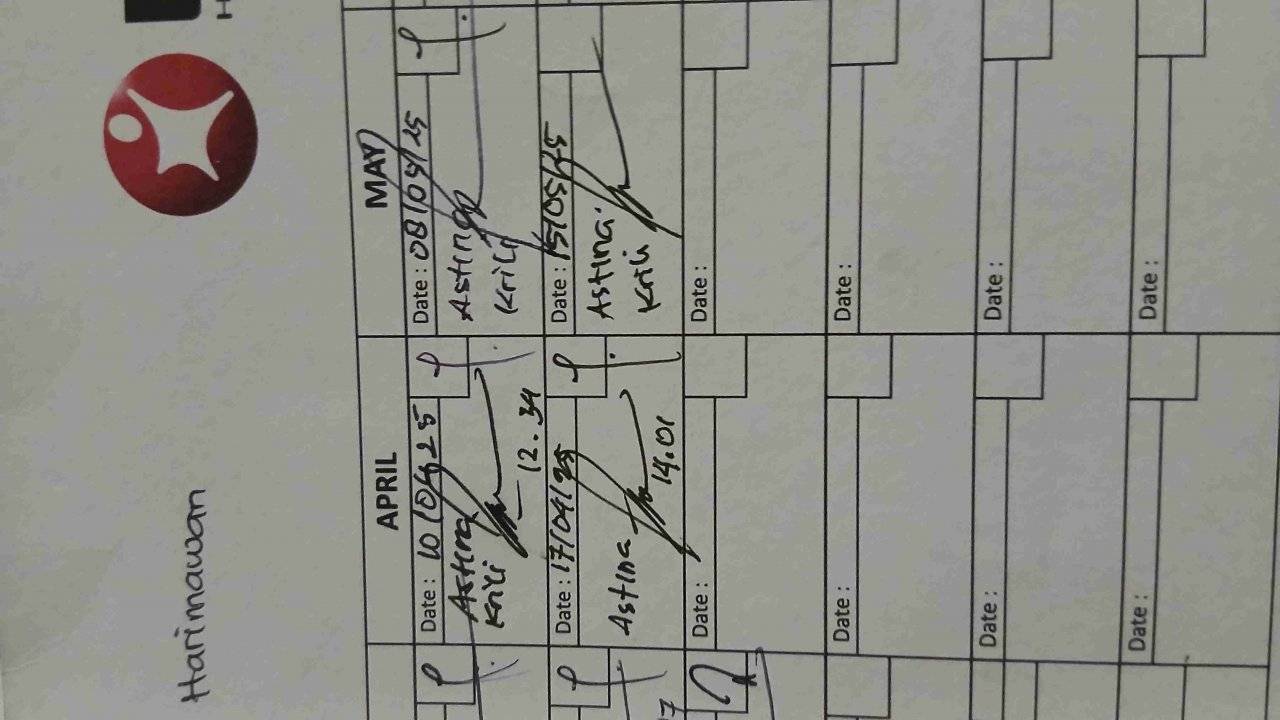 Harimawan
APRIL
MAY
Date : 10/04/25
Astina
Krili
12.34
Date : 08/05/25
Astina
Krili
Date : 17/04/25
Astina
14.01
Date : 15/05/25
Astina
Krili
Date :
Date :
Date :
Date :
Date :
Date :
Date :
Date :